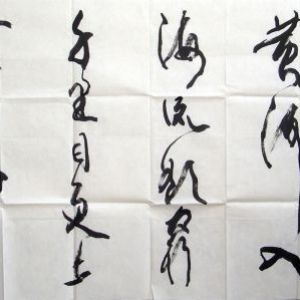 黄河入
海流欲穷
千里目更上